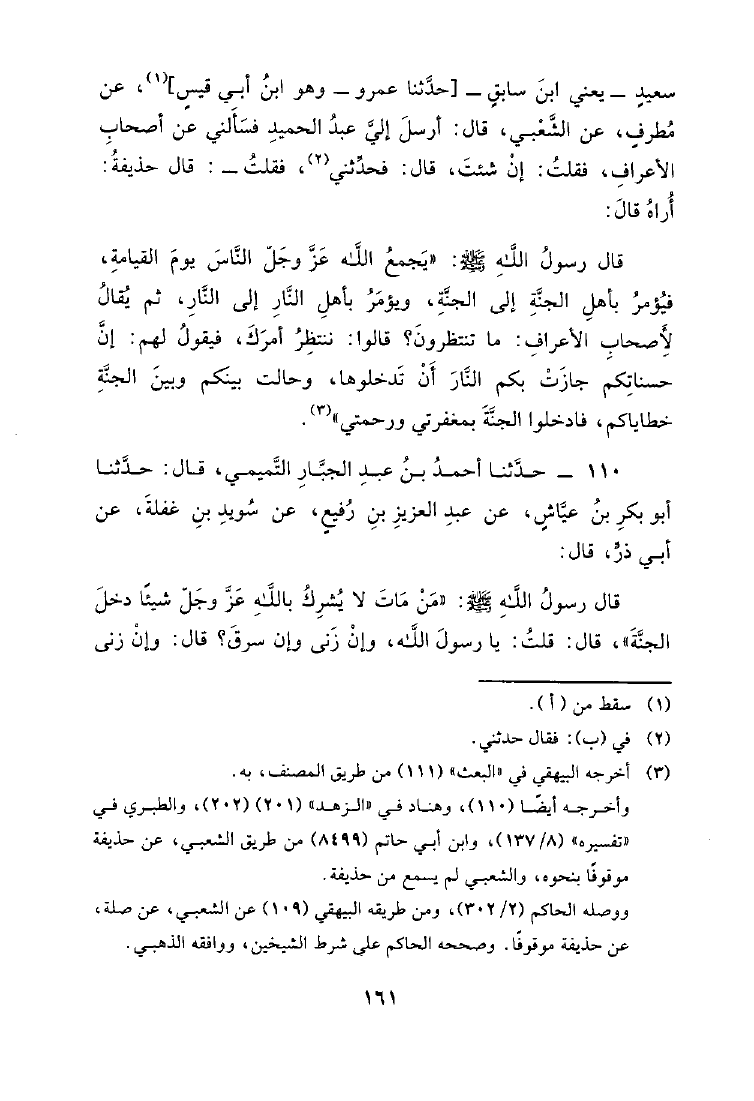 سعيدٍ ــ يعني ابنَ سابقٍ ــ [حدَّثنا عمرو ــ وهو ابنُ أبي قيسٍ](١)، عن
مُطرفٍ، عن الشَّعْبي، قال: أرسلَ إليَّ عبدُ الحميدِ فسَألني عن أصحابِ
الأعرافِ، فقلتُ: إنْ شئتَ، قال: فحدِّثني(٢)، فقلتُ ــ : قال حذيفةُ:
أُراهُ قالَ:
قال رسولُ اللَّه ﷺ: «يَجمعُ اللَّه عَزَّ وجَلّ النَّاسَ يومَ القيامةِ،
فيُؤمرُ بأهلِ الجنَّةِ إلى الجنَّةِ، ويؤمَرُ بأهلِ النَّارِ إلى النَّارِ، ثم يُقالُ
لِأَصحابِ الأعرافِ: ما تنتظرونَ؟ قالوا: ننتظِرُ أمرَكَ، فيقولُ لهم: إنَّ
حسناتِكم جازَتْ بكم النَّارَ أَنْ تَدخلوها، وحالت بينكم وبينَ الجنَّةِ
خطاياكم، فادخلوا الجنَّةَ بمغفرتي ورحمتي»(٣).
١١٠ ــ حدَّثنا أحمدُ بنُ عبدِ الجبَّارِ التَّميمي، قال: حدَّثنا
أبو بكرِ بنُ عيَّاشٍ، عن عبدِ العزيزِ بنِ رُفيعٍ، عن سُويدِ بنِ غفلةَ، عن
أبي ذرٍّ، قال:
قال رسولُ اللَّهِ ﷺ: «مَنْ مَاتَ لا يُشرِكُ باللَّهِ عَزَّ وجَلّ شيئًا دخلَ
الجنَّةَ»، قال: قلتُ: يا رسولَ اللَّه، وإنْ زَنى وإن سرقَ؟ قال: وإنْ زنى
(١) سقط من (أ).
(٢) في (ب): فقال حدثني.
(٣) أخرجه البيهقي في «البعث» (١١١) من طريق المصنف، به.
وأخرجه أيضًا (١١٠)، وهناد في «الزهد» (٢٠١) (٢٠٢)، والطبري في
«تفسيره» (٨/ ١٣٧)، وابن أبي حاتم (٨٤٩٩) من طريق الشعبي، عن حذيفة
موقوفًا بنحوه، والشعبي لم يسمع من حذيفة.
ووصله الحاكم (٢/ ٣٠٢)، ومن طريقه البيهقي (١٠٩) عن الشعبي، عن صلة،
عن حذيفة موقوفًا. وصححه الحاكم على شرط الشيخين، ووافقه الذهبي.
١٦١